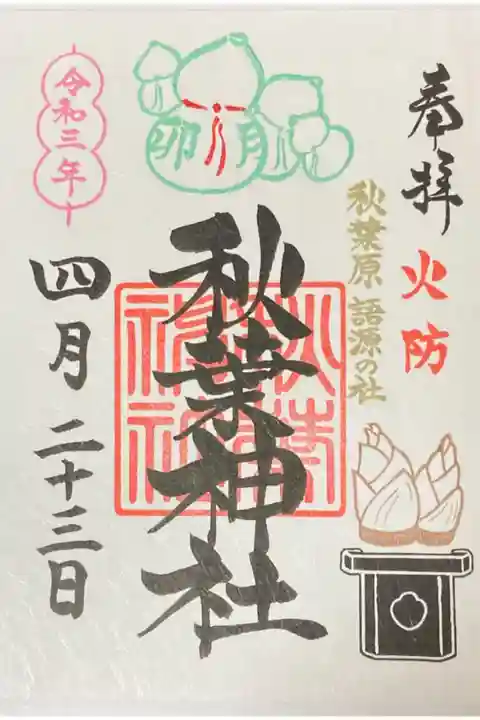 奉拝
火防
秋葉原 語源の社
卯月
秋葉神社
秋葉神社
令和三年
四月二十三日